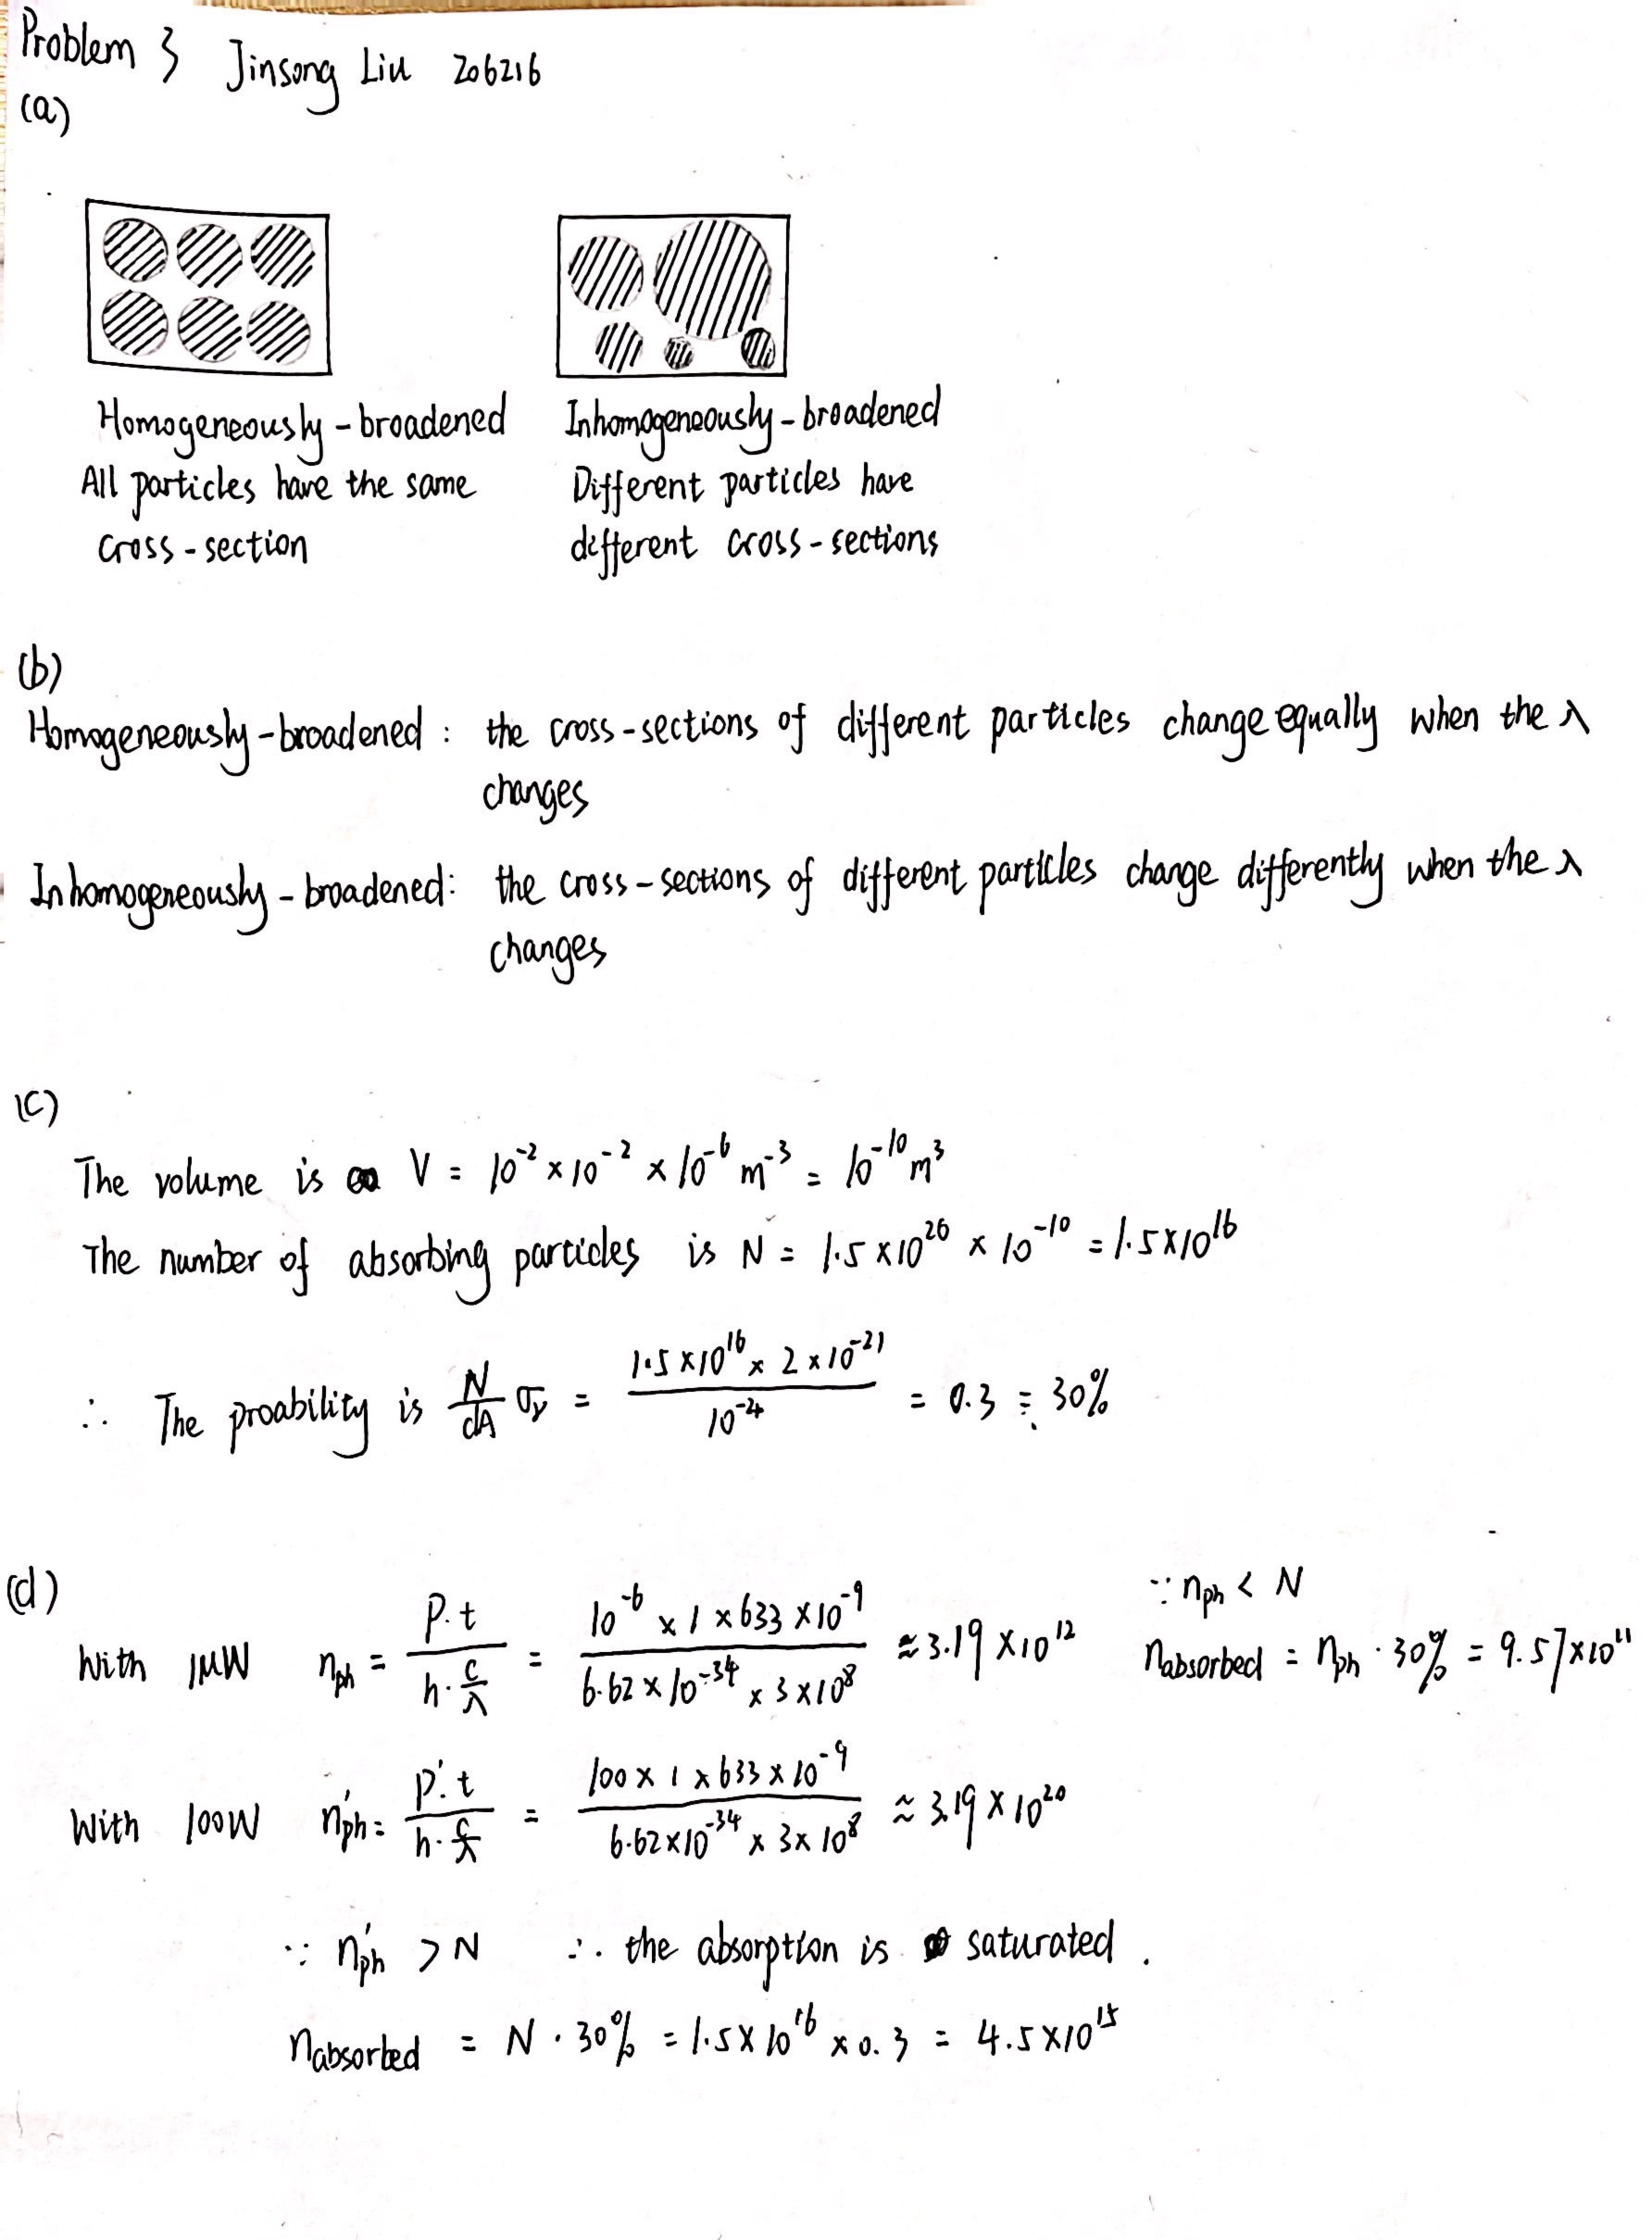 Problem 3 Jinsong Liu 206216
(a)
Homogeneously-broadened Inhomogeneously-broadened
All particles have the same Different particles have
cross-section different cross-sections
(b)
Homogeneously-broadened: the cross-sections of different particles change equally when the λ
changes
Inhomogeneously-broadened: the cross-sections of different particles change differently when the λ
changes
(c)
The volume is V = 10^-2 × 10^-2 × 10^-6 m^-3 = 10^-10 m^3
The number of absorbing particles is N = 1.5 × 10^26 × 10^-10 = 1.5 × 10^16
∴ The proability is N/dA σ_ν = (1.5 × 10^16 × 2 × 10^-21)/10^-4 = 0.3 = 30%
(d)
∵ n_ph < N
With 1μW n_ph = P·t/(h·c/λ) = (10^-6 × 1 × 633 × 10^-9)/(6.62 × 10^-34 × 3 × 10^8) ≈ 3.19 × 10^12 n_absorbed = n_ph · 30% = 9.57 × 10^11
With 100W n'_ph = P'·t/(h·c/λ) = (100 × 1 × 633 × 10^-9)/(6.62 × 10^-34 × 3 × 10^8) ≈ 3.19 × 10^20
∵ n'_ph > N ∴ the absorption is saturated.
n_absorbed = N · 30% = 1.5 × 10^16 × 0.3 = 4.5 × 10^15